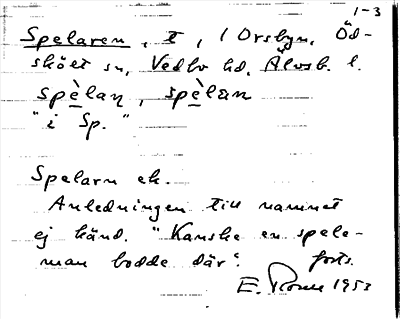 1-3
Spelaren, t, i Orsbyn, Öd-
sköet sn, Vedbo hd, Älvsb. l.
spèlan, spèlan
"i Sp."
Spelarn ek.
Anledningen till namnet
ej känd. "Kanske en spele-
man bodde där". forts.
E. 1953